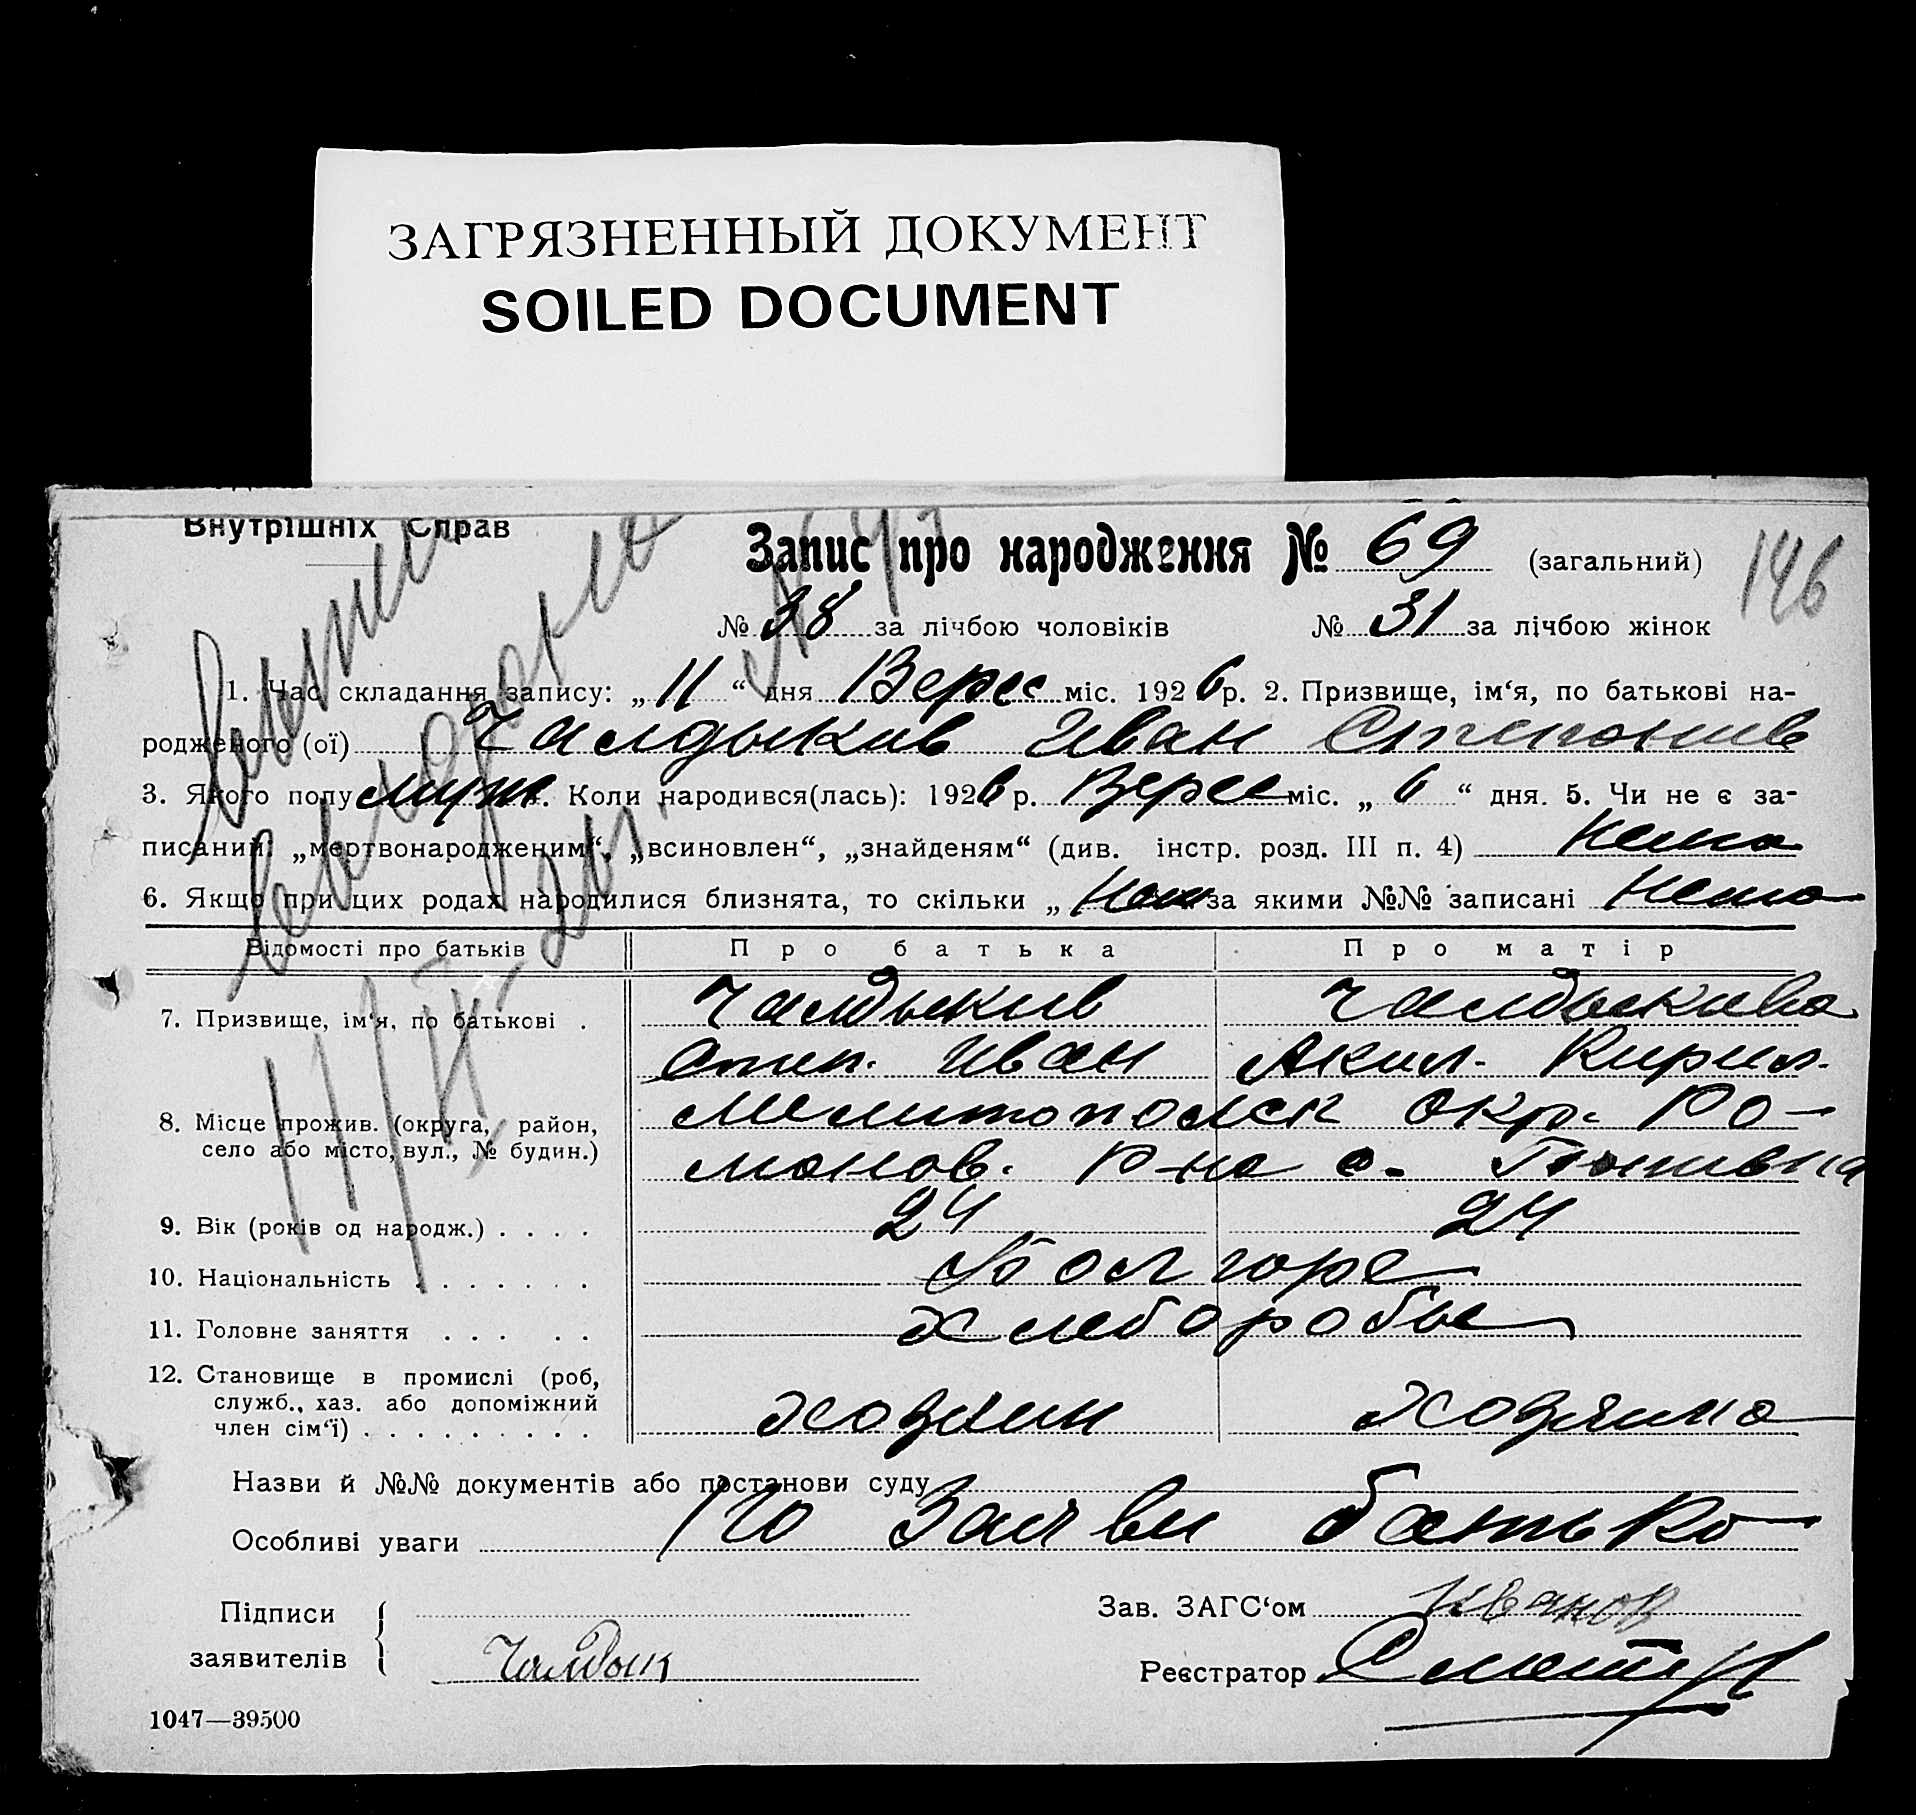 ЗАГРЯЗНЕННЫЙ ДОКУМЕНТ
SOILED DOCUMENT
Внутрішніх Справ
Запис про народження № 69 (загальний) 146
№ 38 за лічбою чоловіків № 31 за лічбою жінок
1. Час складання запису: „ 11 “ дня Верес міс. 1926 р. 2. Призвище, ім‘я, по батькові на-
родженого (ої) Чалдыкив Иван Степонив
3. Якого полу муж. Коли народився(лась): 1926 р. Верес міс. „ 6 “ дня. 5. Чи не є за-
писаний: „мертвонародженим“, „всиновлен“, „знайденям“ (див. інстр. розд. III п. 4) нема
6. Якщо при цих родах народилися близнята, то скільки „ нем за якими №№ записані нема
Відомості про батьків Про батька Про матір
7. Призвище, ім‘я, по батькові . Чалдыкив Чалдыкива
Степ. Иван Акил. Кирил.
8. Місце прожив. (округа, район, Мелитополск окр. Ро-
село або місто, вул., № будин.) манов. Р-на с.
9. Вік (років од народж.) . . . . 24 24
10. Національність . . . . . . . Болгоре
11. Головне заняття . . . . . Хлеборобы
12. Становище в промислі (роб,
служб., хаз. або допоміжний хозяин хозяина
член сім‘ї) . . . . . . . . .
Назви й №№ документів або постанови суду
Особливі уваги По Заяви батька
Підписи
заявителів Чалдык
Зав. ЗАГС‘ом Иванов
Реєстратор
1047—39500